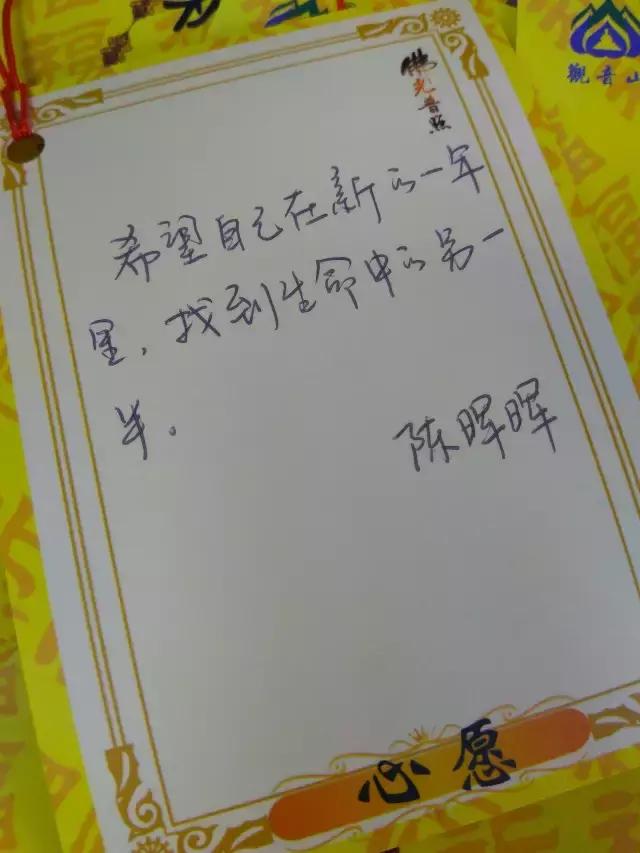 觀音山
佛光普照
希望自己在新的一年
里，找到生命中的另一
半。
陈晖晖
心愿